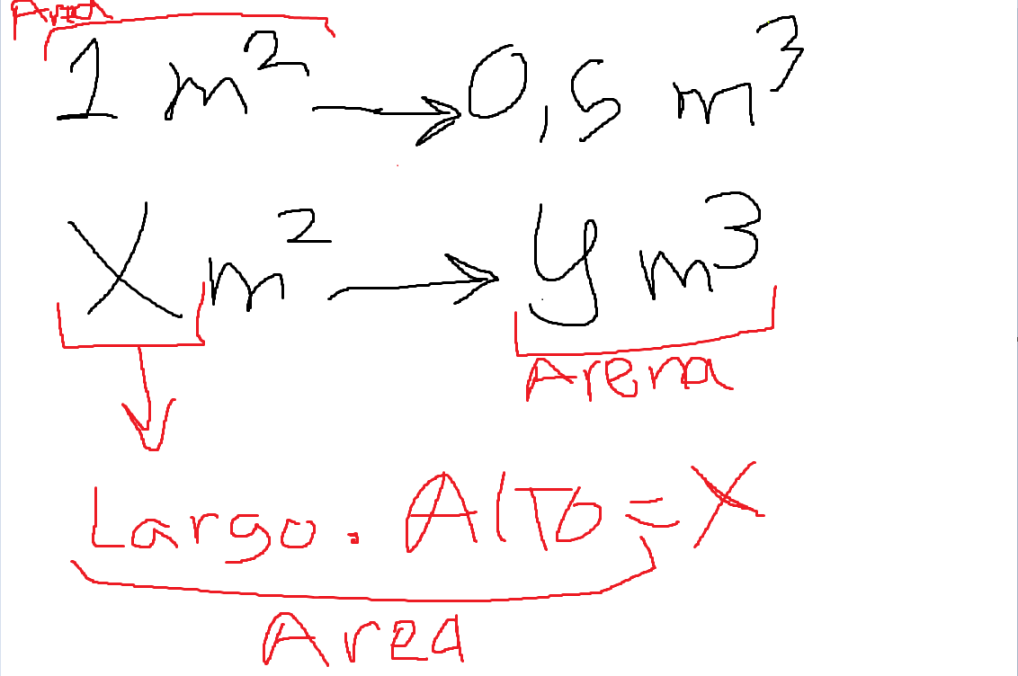 Area
1 m² → 0,5 m³
X m² → y m³
Arena
Largo . Alto = X
Area